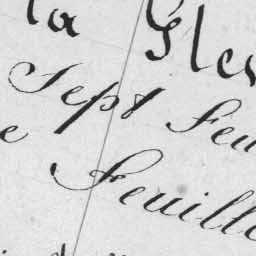 la Gle
Sept Feu
e Feuille